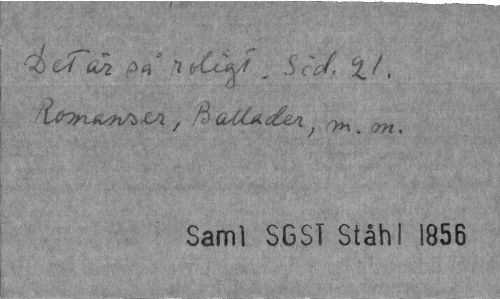 Det är så roligt. Sid. 21.
Romanser, Ballader, m. m.
Saml SGST Ståhl 1856